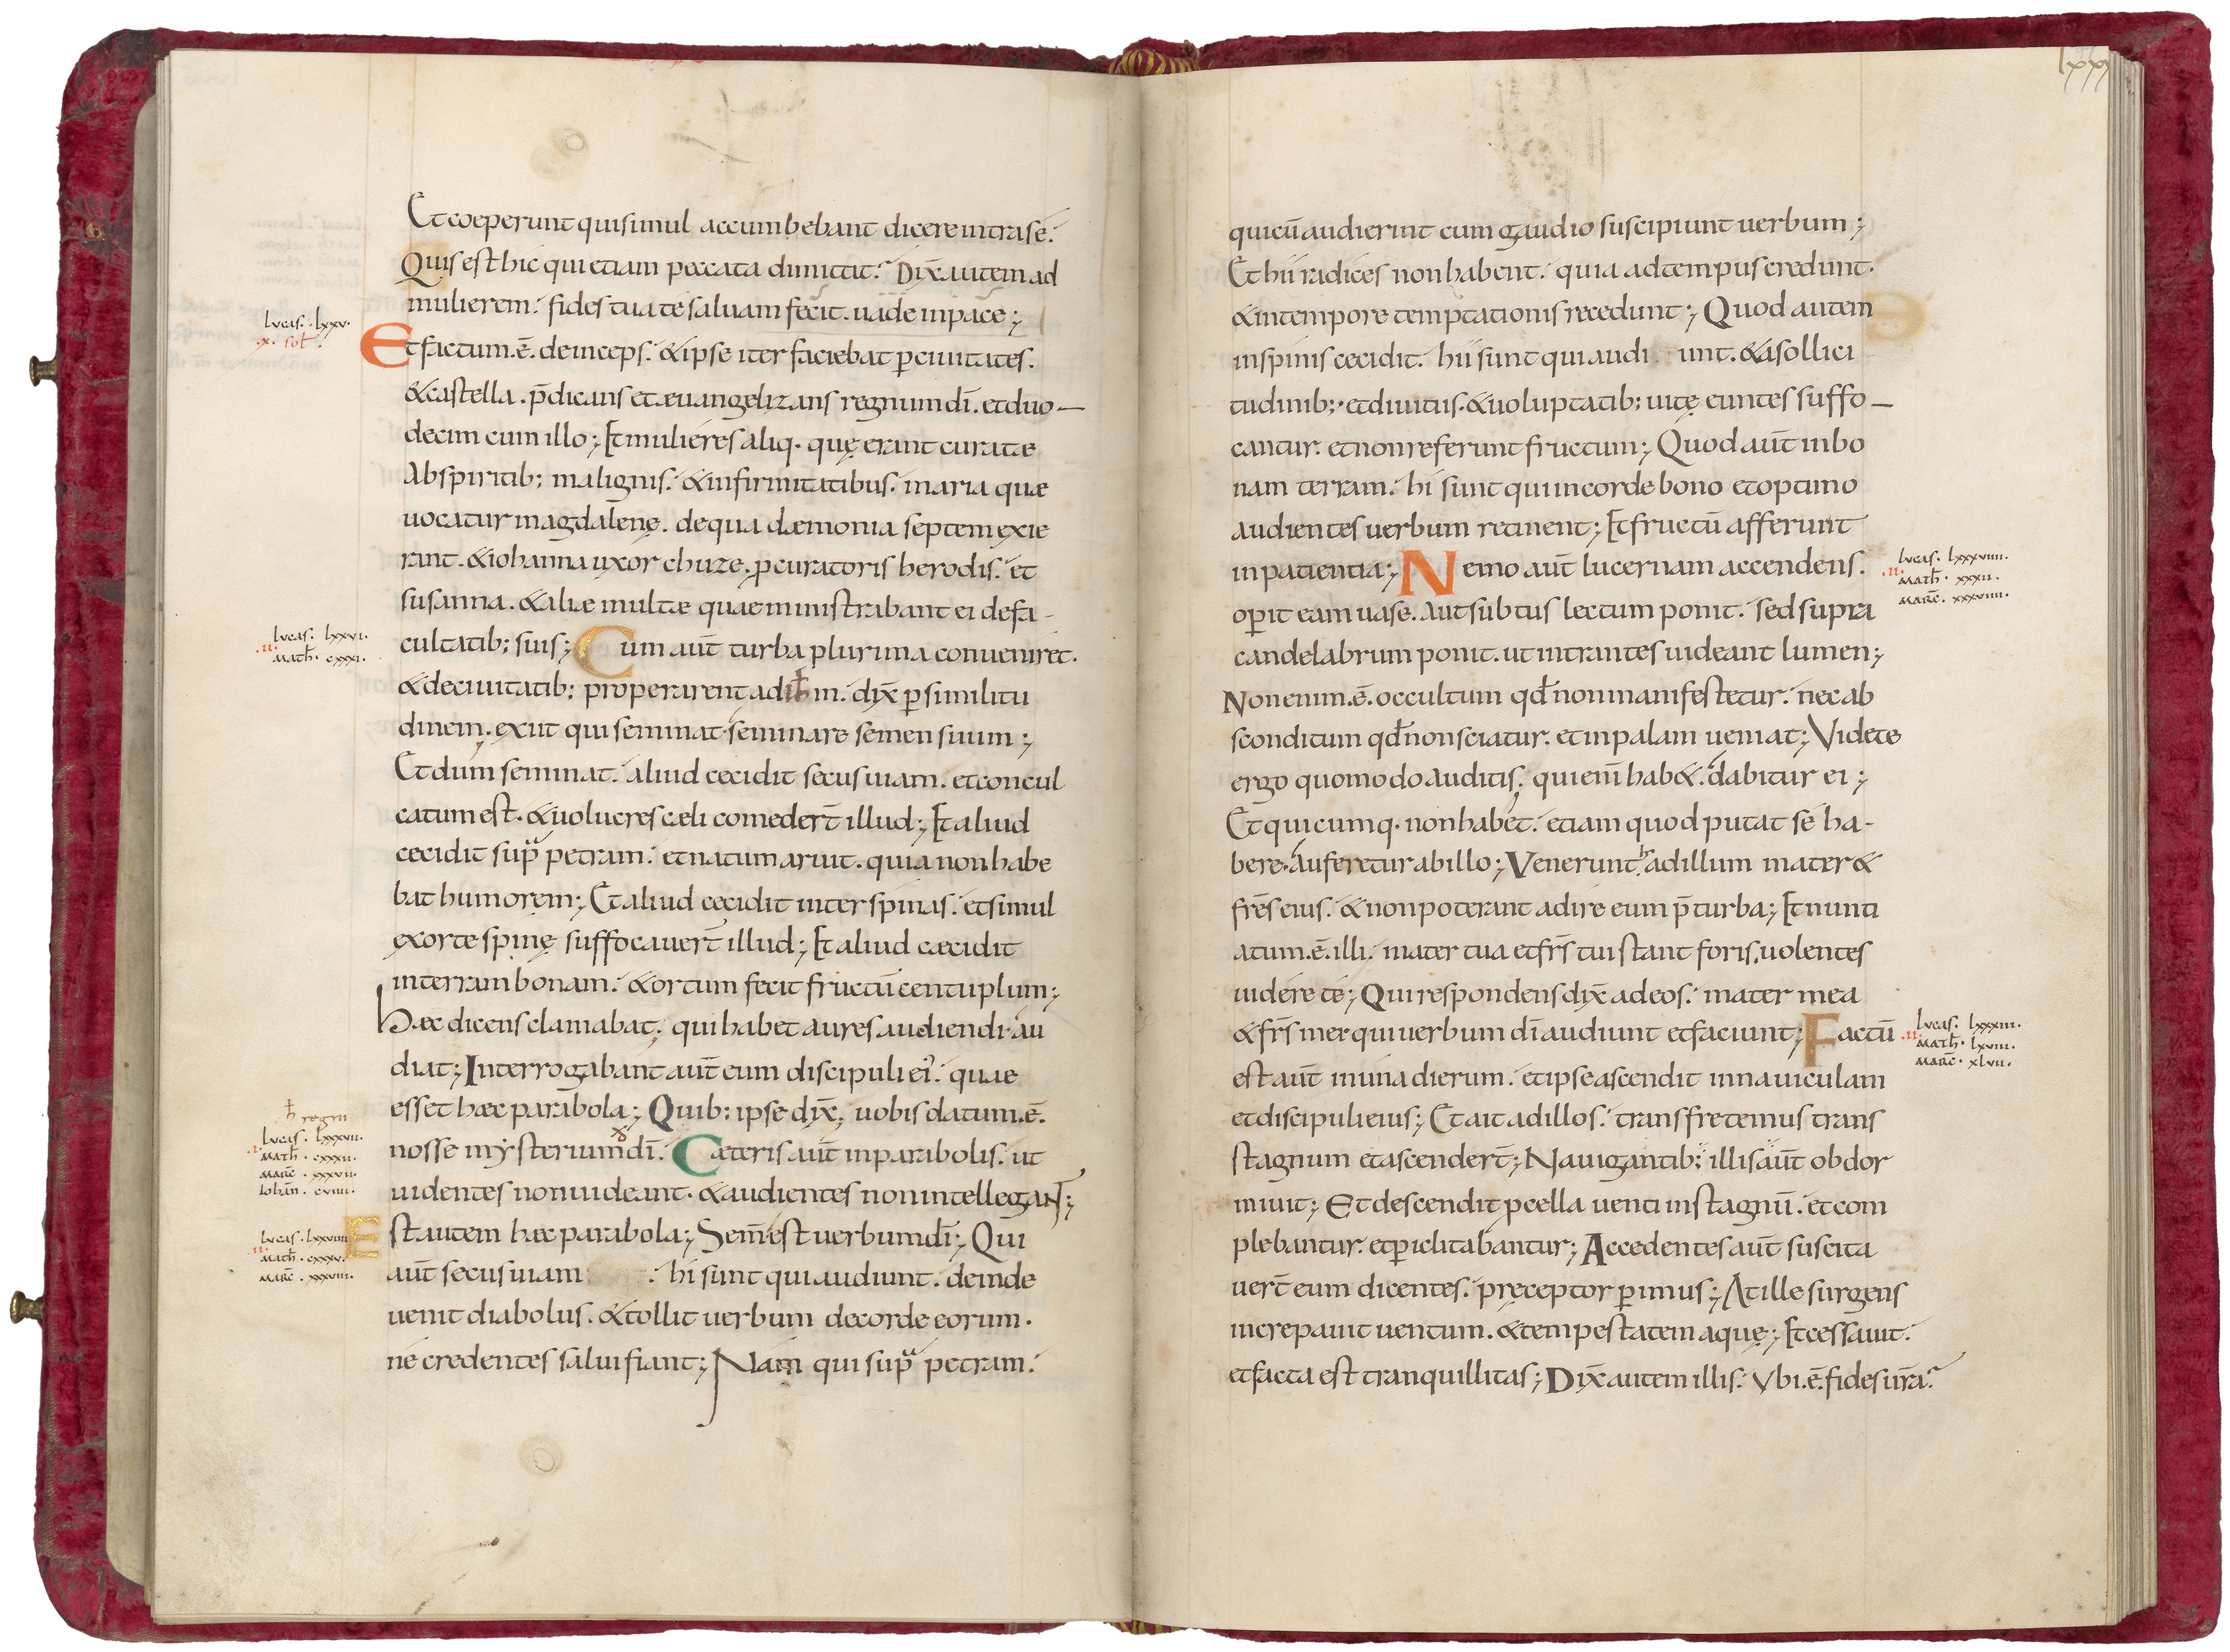 Et coeperunt qui simul accumbebant dicere intra sé.
Quis est hic qui etiam peccata dimittit? Dix̄ autem ad
mulierem. fides tua te saluam fecit. uade in pace;
lucas. lxxv.
.x. sol̄.
Et factum .ē. deinceps. & ipse iter faciebat ꝑ ciuitates.
& castella. p̄dicans et euangelizans regnum dī. et duo—
decim cum illo; Et mulieres aliq. quę erant curatæ
Ab spiritib; malignis. & infirmitatibus. maria quæ
uocatur magdalenę. de qua dæmonia septem exie
rant. & iohanna uxor chuze. ꝓcuratoris herodis. et
susanna. & aliæ multæ quae ministrabant ei de fa-
lucas. lxxvi.
.ii.
math̄. cxxxi.
cultatib; suis; Cum aut̄ turba plurima conueniret.
& de ciuitatib; properarent ad ih̄m. dix̄ ꝑ similitu
dinem. exiit qui seminat seminare semen suum;
Et dum seminat. aliud cecidit secus uiam. et concul
catum est. & uolucres cæli comedert̄ illud; Et aliud
cecidit supᵃ petram. et natum aruit. quia non habe
bat humorem; Et aliud cecidit inter spinas. et simul
exorte spinę suffocauert̄ illud; Et aliud cæcidit
in terram bonam. & ortum fecit fructū centuplum;
Hæc dicens clamabat. qui habet aures audiendi au
diat; Interrogabant aut̄ eum discipuli eiꝰ. quae
esset hæc parabola; Quib; ipse dix̄. uobis datum .ē.
h̄ regni
lucas. lxxxvii.
.i.
math̄. cxxxii.
marc̄. xxxvii.
iohan̄. cviiii.
nosse mysterium dī. Cæteris aut̄ in parabolis. ut
uidentes non uideant. & audientes non intellegant;
lucas. lxxviii
.ii.
math̄. cxxxv.
marc̄. xxxviii.
Est autem hæc parabola; Sem̄ est uerbum dī; Qui
aut̄ secus uiam . hi sunt qui audiunt. deinde
uenit diabolus. & tollit uerbum de corde eorum.
ne credentes salui fiant; Nam qui supᵃ petram.
lxxx
qui cū audierint cum gaudio suscipiunt uerbum;
Et hii radices non habent. quia ad tempus credunt.
& in tempore temptationis recedunt; Quod autem
in spinis cecidit. hii sunt qui audi unt. & a sollici
tudinib; et diuitiis. & uoluptatib; uitę euntes suffo—
cantur. et non referunt fructum; Quod aut̄ in bo
nam terram. hi sunt qui in corde bono et optimo
audientes uerbum retinent; Et fructū afferunt
in patientia; Nemo aut̄ lucernam accendens.
lucas. lxxxviiii.
.ii.
math̄. xxxii.
marc̄. xxxviiii.
oꝑit eam uase. Aut subtus lectum ponit. sed supra
candelabrum ponit. ut intrantes uideant lumen;
Non enim .ē. occultum qd̄ non manifestetur. nec ab
sconditum qd̄ non sciatur. et in palam ueniat; Videte
ergo quomodo auditis. qui enī hab&. dabitur ei;
Et quicumq. non habet. etiam quod putat sé ha-
bere. Auferetur ab illo; Venerunt ad illum mater &
frēs eius. & non poterant adire eum p̄ turba; Et nunti
atum .ē. illi. mater tua et frs̄ tui stant foris, uolentes
uidere té; Qui respondens dix̄ ad eos. mater mea
& frs̄ mei qui uerbum dī audiunt et faciunt; Factū
lucas. lxxxiii.
.ii.
math̄. lxviii.
marc̄. xlvii.
est aut̄ in una dierum. et ipse ascendit in nauiculam
et discipuli eius; Et ait ad illos. transfretemus trans
stagnum et ascendert̄; Nauigantib; illis aut̄ obdor
miuit; Et descendit ꝓcella uenti in stagnū. et com
plebantur. et ꝑiclitabantur; Accedentes aut̄ suscita
uert̄ eum dicentes. pręceptor ꝑimus; At ille surgens
increpauit uentum. & tempestatem aquę; Et cessauit.
et facta est tranquillitas; Dix̄ autem illis. Vbi .ē. fides urā?